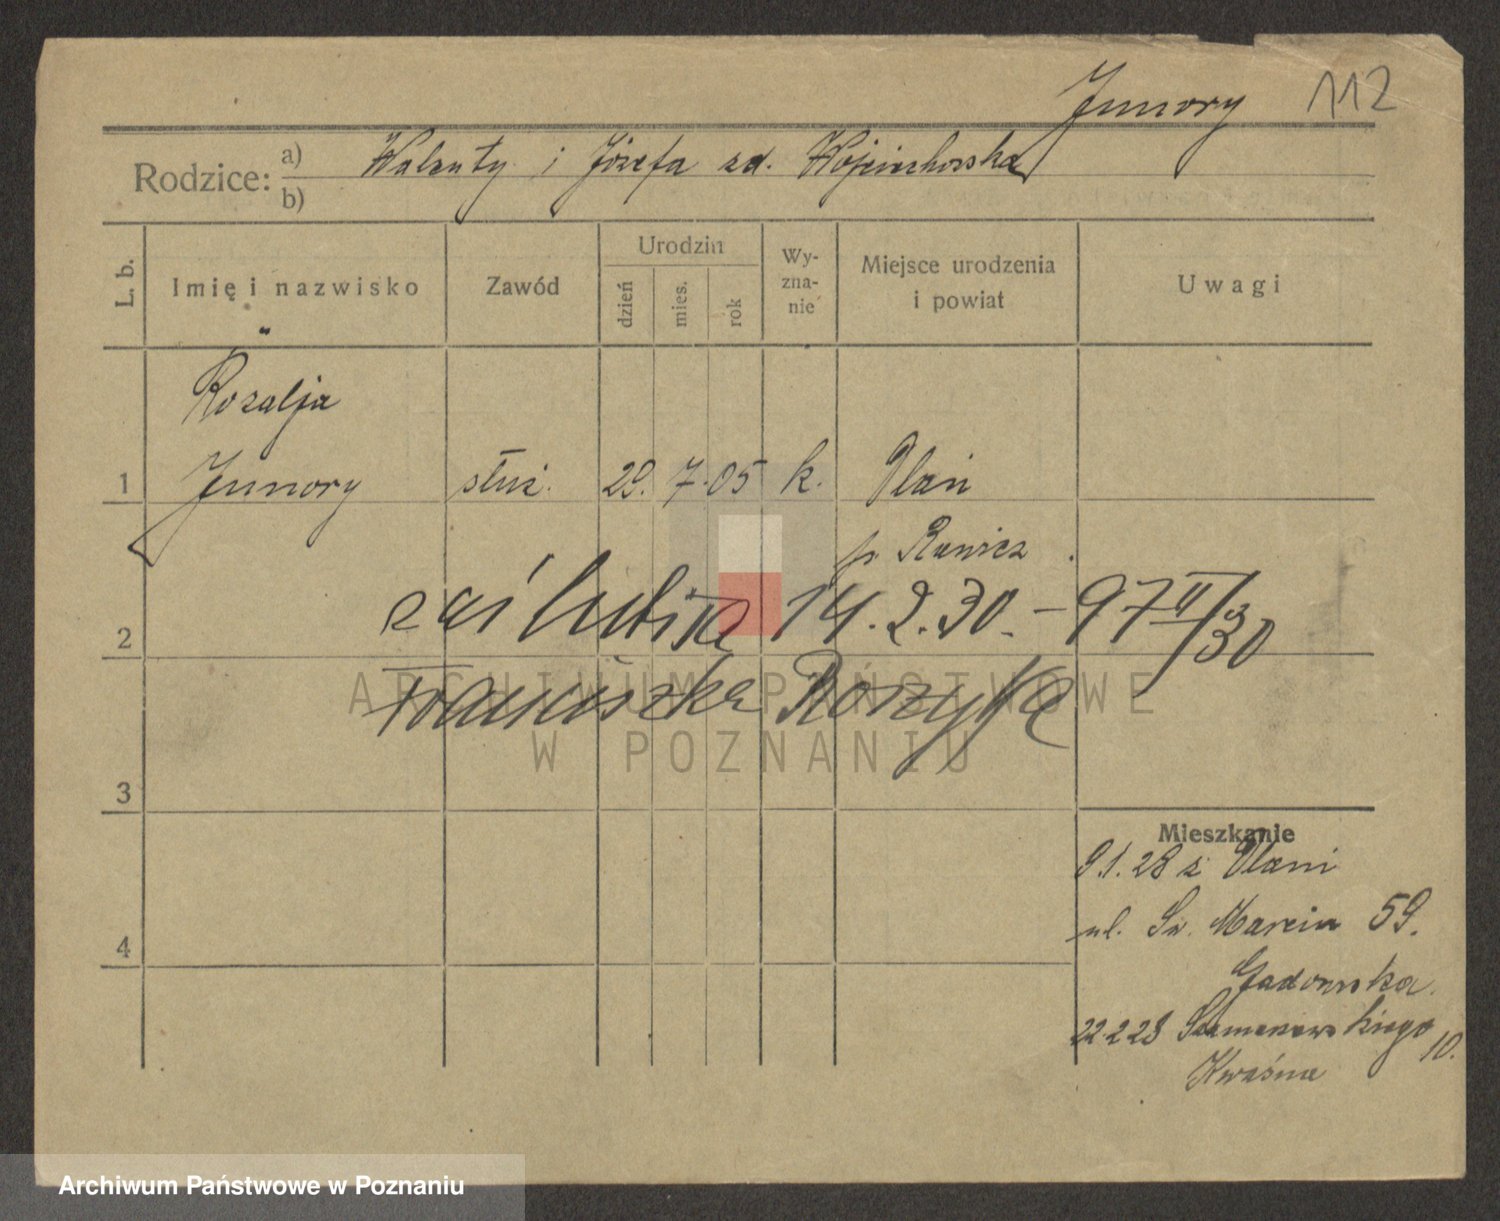 Junory 112
Rodzice: a) Walenty i Józefa zd. Wojciechowska
b)
L. b. Imię i nazwisko Zawód Urodzin Wyznanie Miejsce urodzenia i powiat Uwagi
dzień mies. rok
Rozalja
1 Junory służ. 29. 7. 05 k. Ułań
p. Rawicz
2 zaślubiła 14.2.30. – 97 II/30
Franciszka Rozyka
ARCHIWUM PAŃSTWOWE
W POZNANIU
3
Mieszkanie
9.1.28 z Ułani
ul. Św. Marcin 59.
4
Gadowska.
22 2 28 Szamarzewskiego 10.
Kwaśna
Archiwum Państwowe w Poznaniu